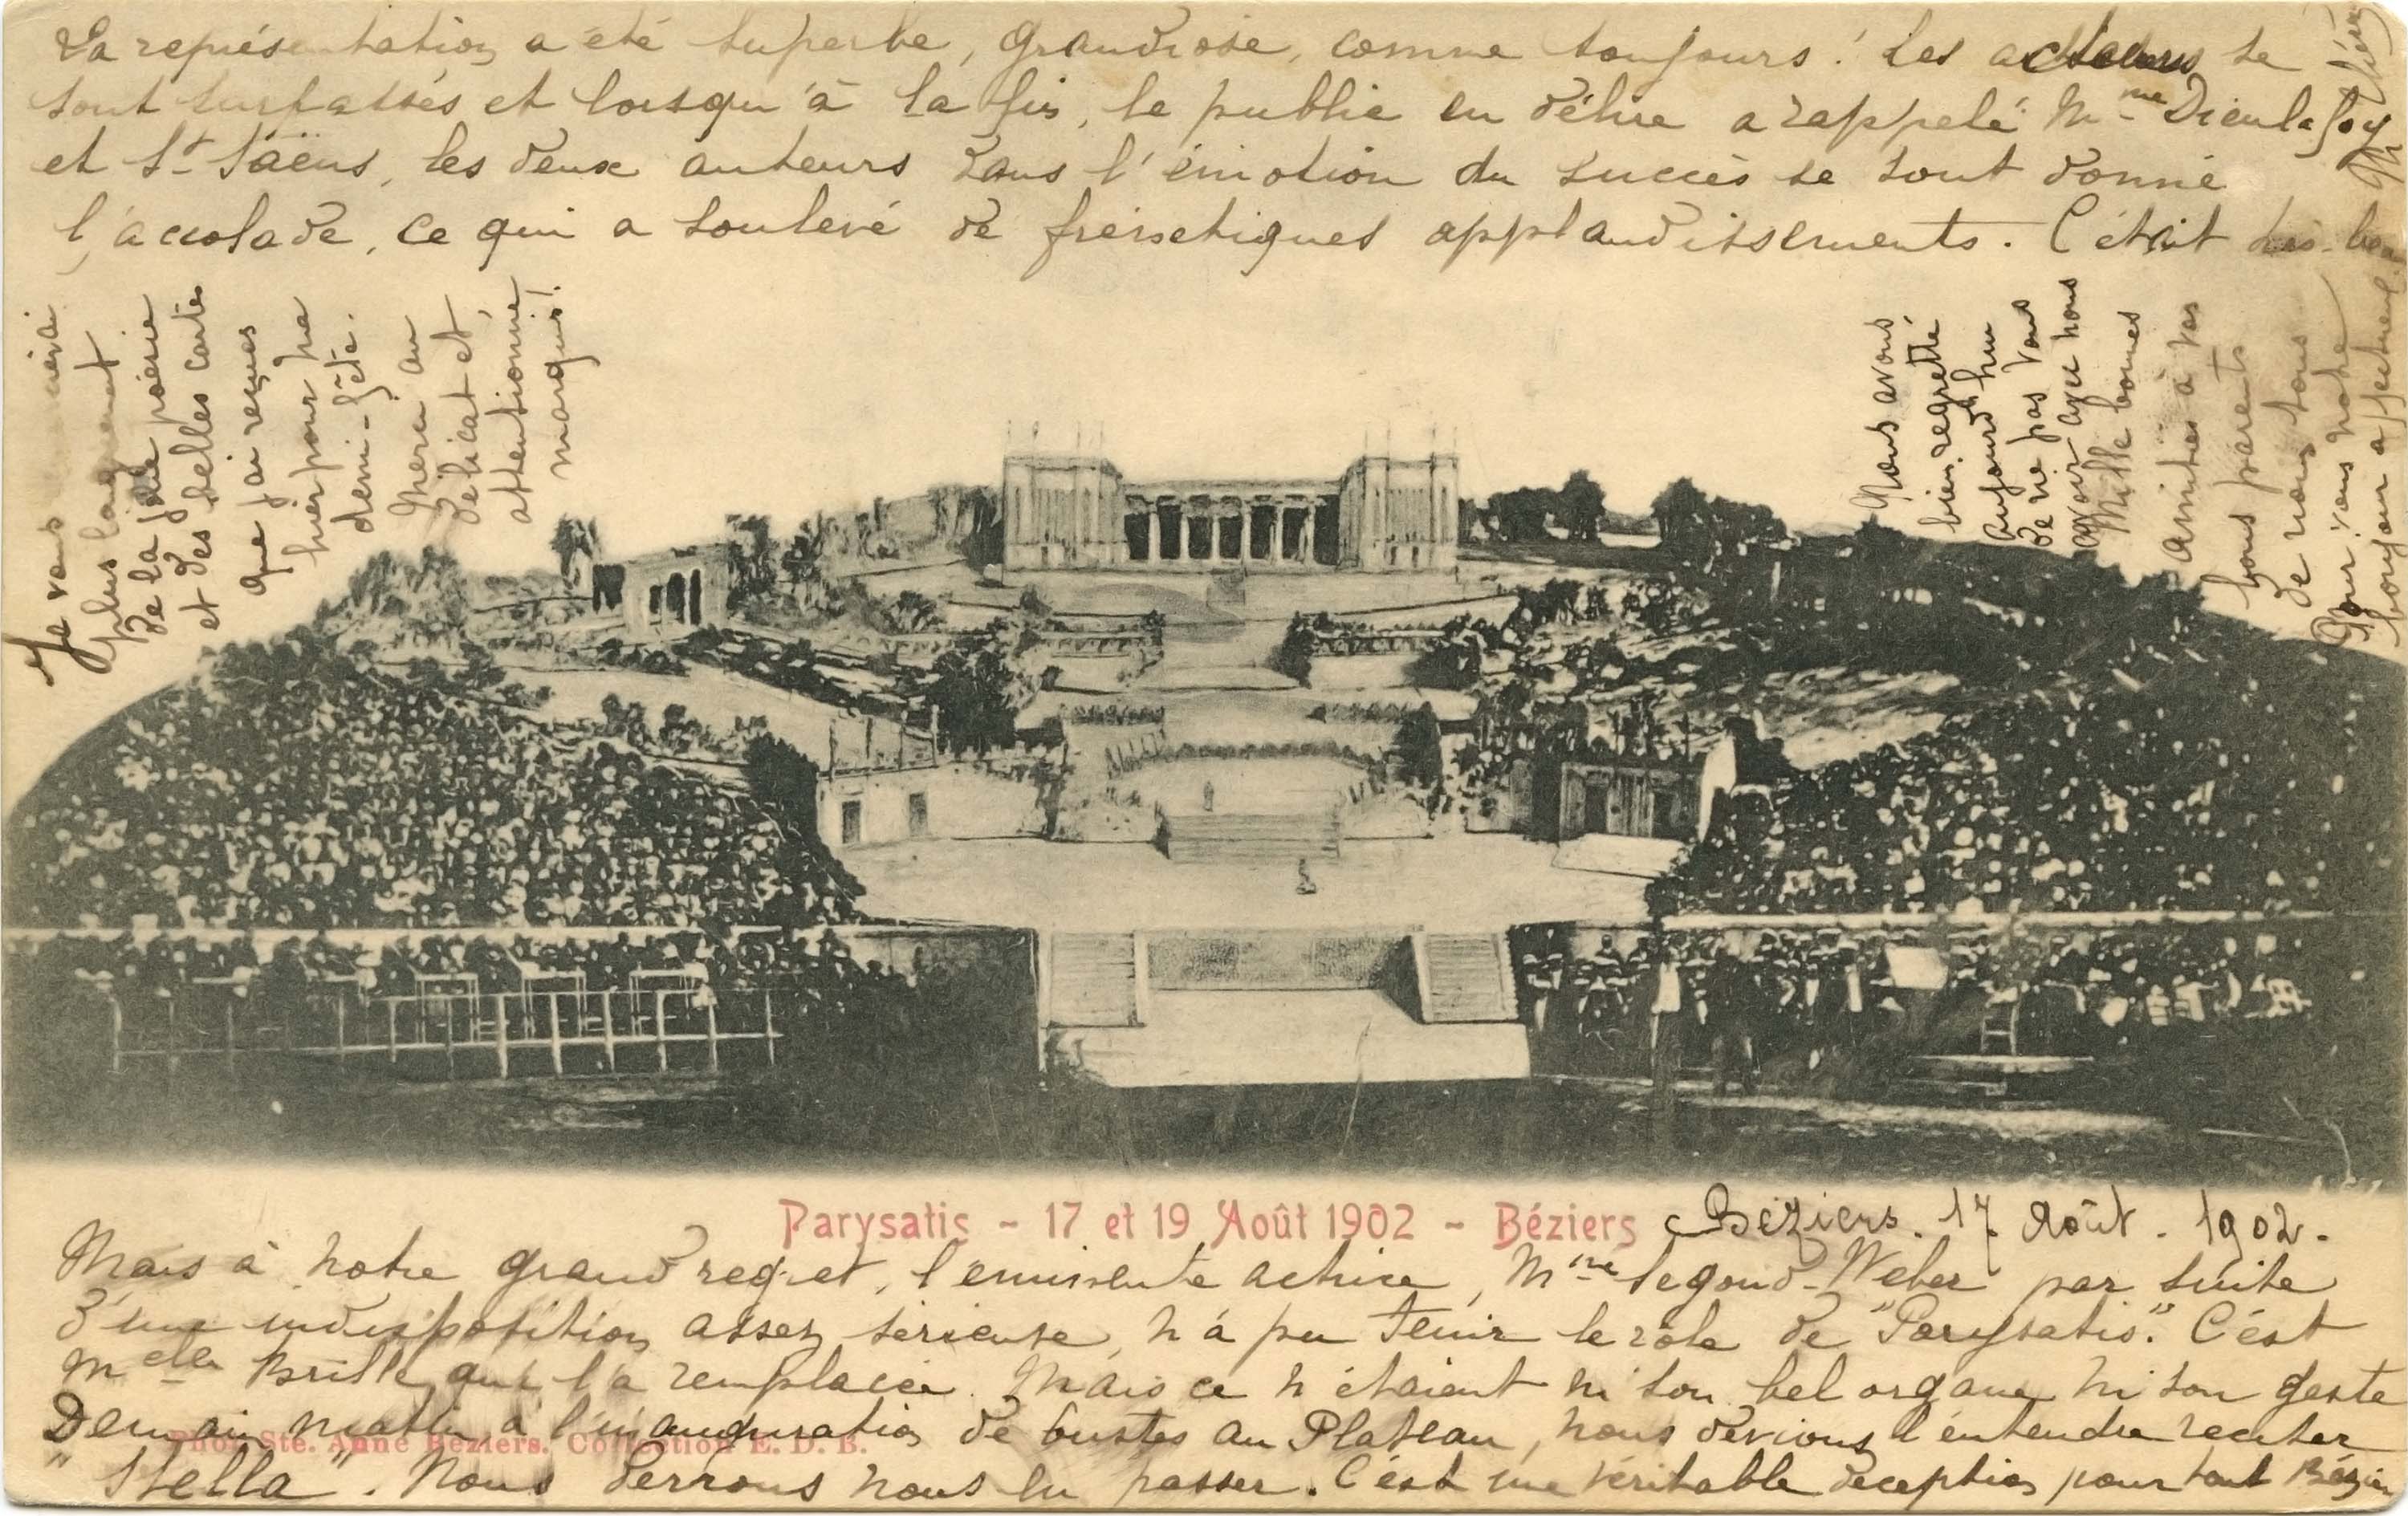 La représentation a été superbe, grandiose, comme toujours! Les acteurs se
sont surpassés et lorsqu'à la fin, le public en délire a rappelé Mme Dieulafoy
et St Saëns, les deux auteurs dans l'émotion du succès se sont donné
l'accolade, ce qui a soulevé de frénétiques applaudissements. C'était très-beau
Je vous
plus longuement
de la jolie poésie
et des belles cartes
que j'ai reçues
hier pour ma
demi-fête.
Merci au
délicat et,
attentionné
marquis!
Nous avons
bien regretté
aujourd'hui
de ne pas vous
avoir avec nous
Mille bonnes
amitiés à vos
bons parents
de nous tous
Pour vous notre
bonjour affectueux
Parysatis - 17 et 19 Août 1902 - Béziers
Béziers. 17 Août. 1902.
Mais à notre grand regret, l'éminente actrice, Mme Segond-Weber par suite
d'une indisposition assez sérieuse, n'a pu tenir le rôle de "Parysatis". C'est
Melle Brille qui l'a remplacée. Mais ce n'étaient ni son bel organe ni son geste
Demain matin à l'inauguration de bustes au Plateau, nous devions l'entendre reciter
"Stella". Nous devrons nous en passer. C'est une véritable déception pour tout Béziers
Phot. Ste. Anne Béziers. Collection E. D. B.